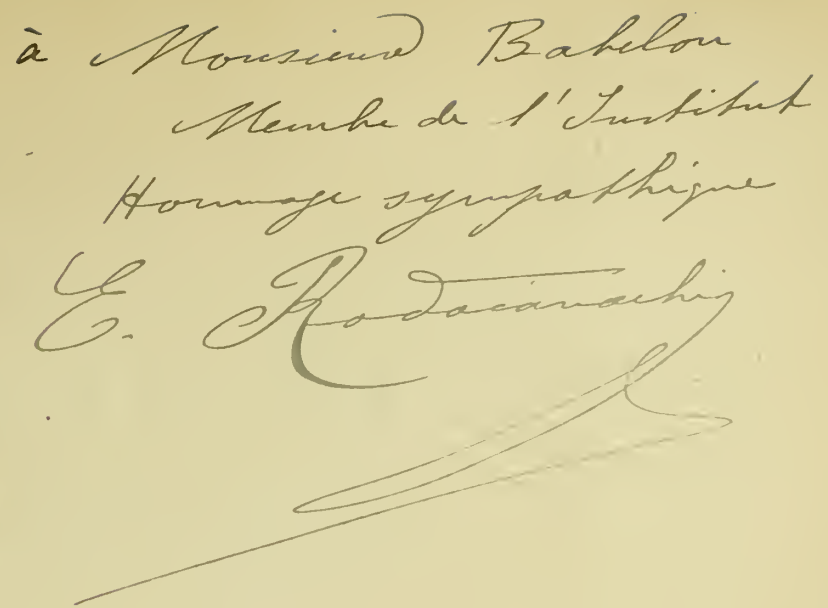 à Monsieur Babelon
Membre de l'Institut
Hommage sympathique
E. Rodocanachi